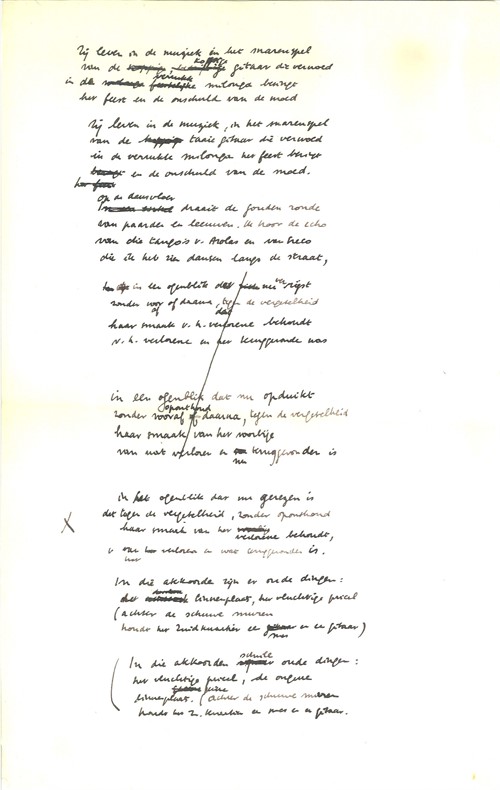 Zij leven in de muziek in het snarenspel
van de koppige gitaar die verwoed
in de verrukte milonga bezingt
het feest en de onschuld van de moed
Zij leven in de muziek, in het snarenspel
van de taaie gitaar die verwoed
in de verrukte milonga het feest bezingt
en de onschuld van de moed.
op de dansvloer
draait de gouden ronde
van paarden en leeuwen. Ik hoor de echo
van die tango's v. Arolas en van Greco
die ik heb zien dansen langs de straat,
in een ogenblik dat nu verrijst
zonder voor of daarna, tegen de vergetelheid
of dat
haar smaak v. h. verlorene behoudt
v. h. verlorene en het teruggevonde was
in een ogenblik dat nu opduikt
oponthoud
zonder vooraf of daarna, tegen de vergetelheid
haar smaak van het voorbije
van wat verloren en teruggevonden is
nu
in het ogenblik dat nu gerezen is
dat tegen de vergetelheid, zonder oponthoud
X haar smaak van het
verlorene behoudt,
v verloren en wat teruggevonden is.
In die akkoorden zijn er oude dingen:
het linnenplaat, het vluchtige
(achter de schuwe muren
houdt het Zuid een en een gitaar)
mes
In die akkoorden schuile oude dingen:
het vluchtige, de
(achter de schuwe muren
en mes en een gitaar.